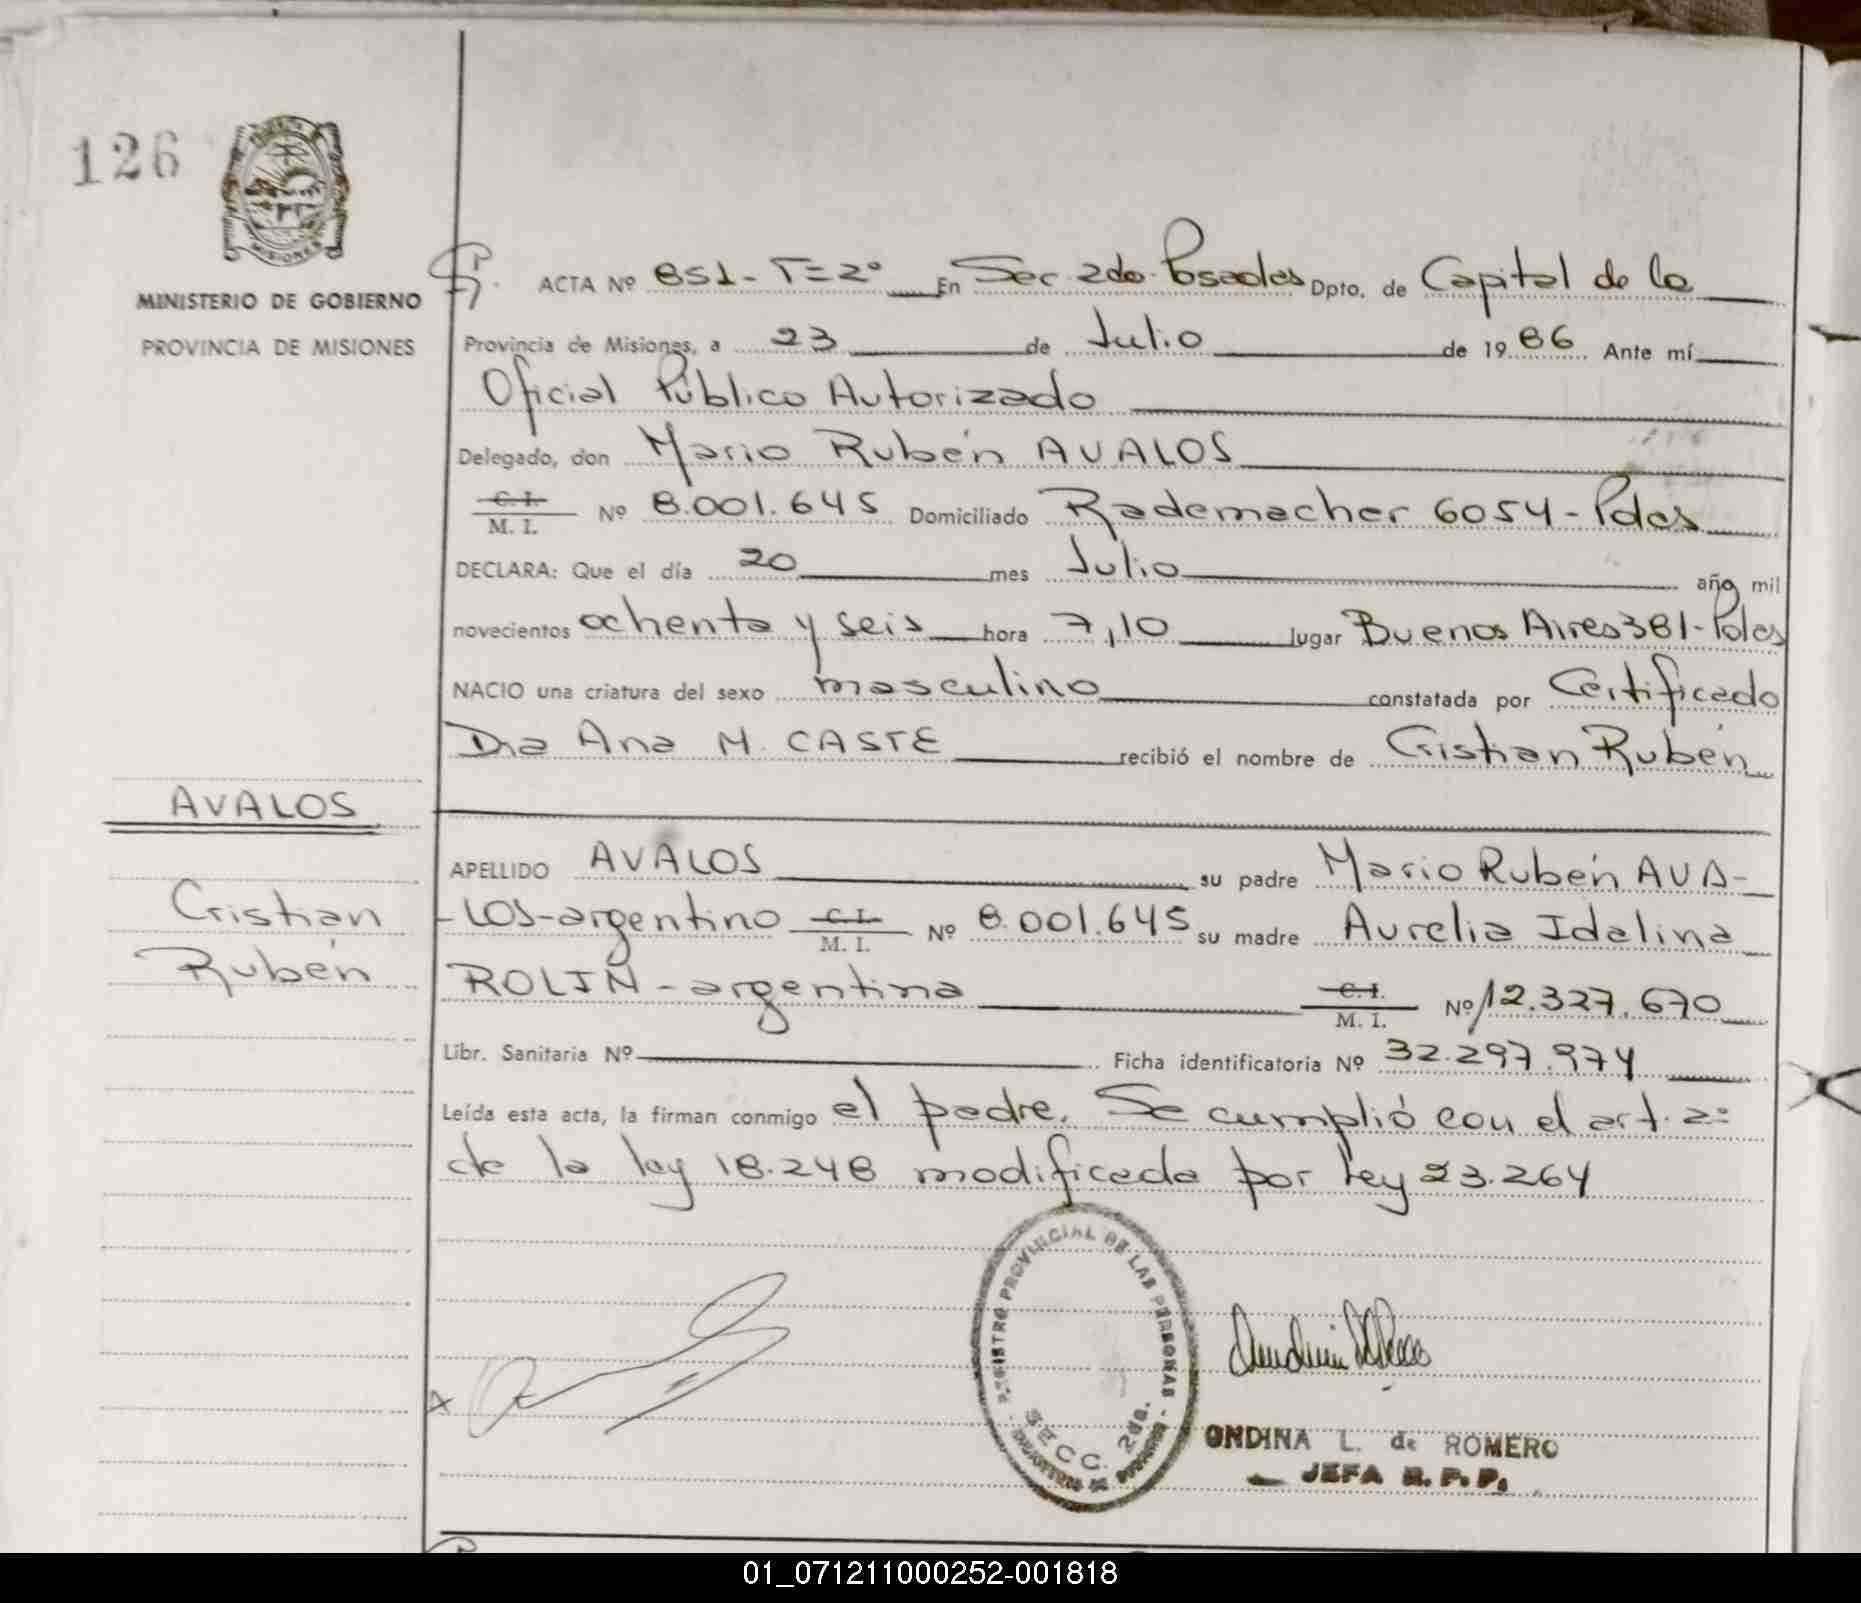 126
MISIONES
MINISTERIO DE GOBIERNO
PROVINCIA DE MISIONES
ACTA Nº 851 - T=2º En Sec 2da. Posadas Dpto. de Capital de la
Provincia de Misiones, a 23 de Julio de 1986 Ante mí
Oficial Público Autorizado
Delegado, don Mario Rubén AVALOS
C. I.
M. I. Nº 8.001.645 Domiciliado Rademacher 6054 - Pdas
DECLARA: Que el día 20 mes Julio año mil
novecientos ochenta y seis hora 7,10 lugar Buenos Aires 381 - Pdas
NACIO una criatura del sexo masculino constatada por Certificado
Dra Ana M. CASTE recibió el nombre de Cristian Rubén
AVALOS
Cristian
Rubén
APELLIDO AVALOS su padre Mario Rubén AVA-
-LOS-argentino C. I. M. I. Nº 8.001.645 su madre Aurelia Idalina
ROLIN - argentina C. I. M. I. Nº 12.327.670
Libr. Sanitaria Nº Ficha identificatoria Nº 32.297.974
Leída esta acta, la firman conmigo el padre. Se cumplió con el art. 2º
de la ley 18.248 modificada por ley 23.264
REGISTRO PROVINCIAL DE LAS PERSONAS
SECC. 2da.
ONDINA L. de ROMERO
JEFA R. P. P.
01_071211000252-001818